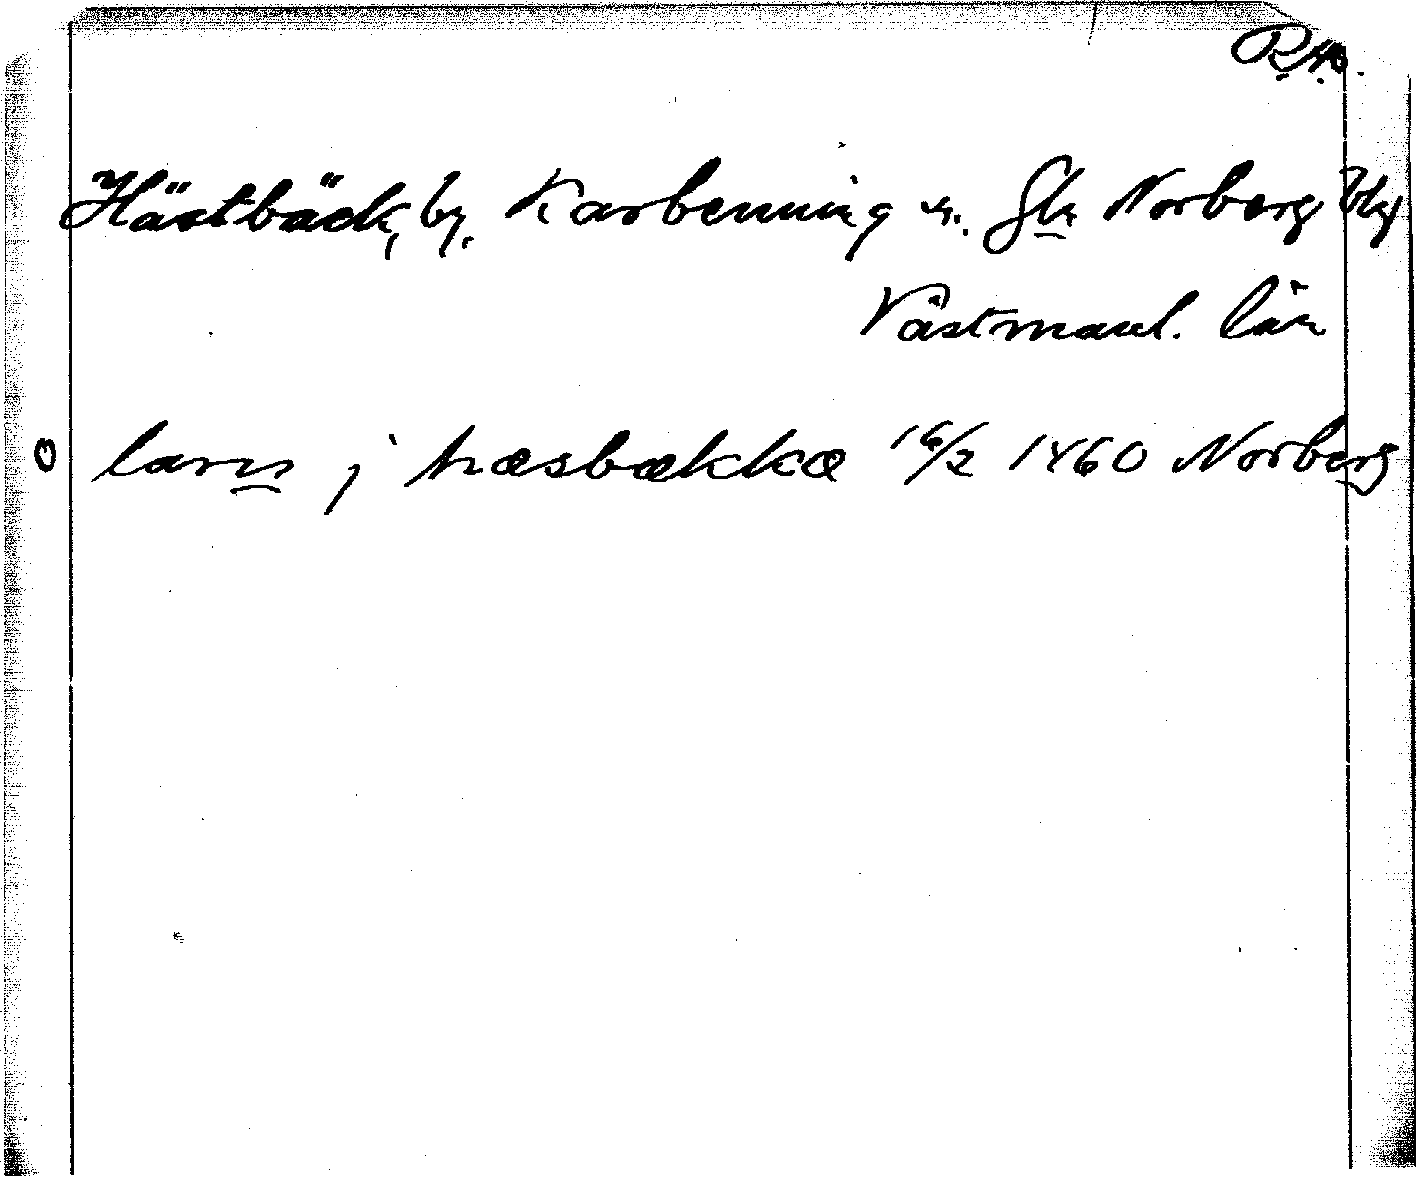 R.A.
Hästbäck, by. Karbenning sn. Gln Norberg Blg
Västmanl. län
larss j hæsbækkæ 16/2 1460 Norberg